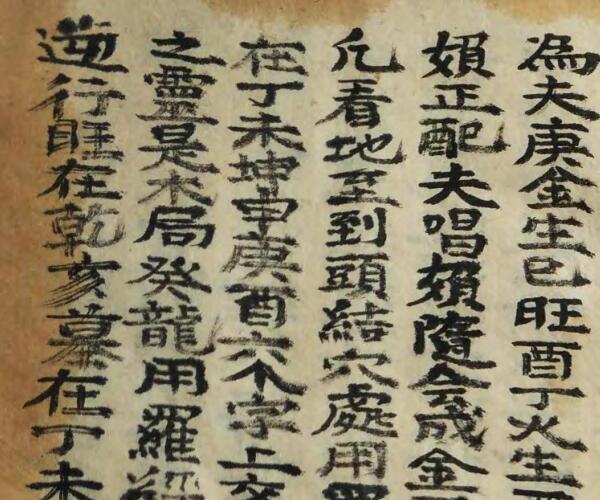 為夫庚金生巳旺酉丁火生
婦正配夫唱婦隨合成金
凡看地至到頭結穴處用
在丁未坤申庚酉六个字上
之靈是木局癸龍用羅
逆行旺在乾亥墓在丁未